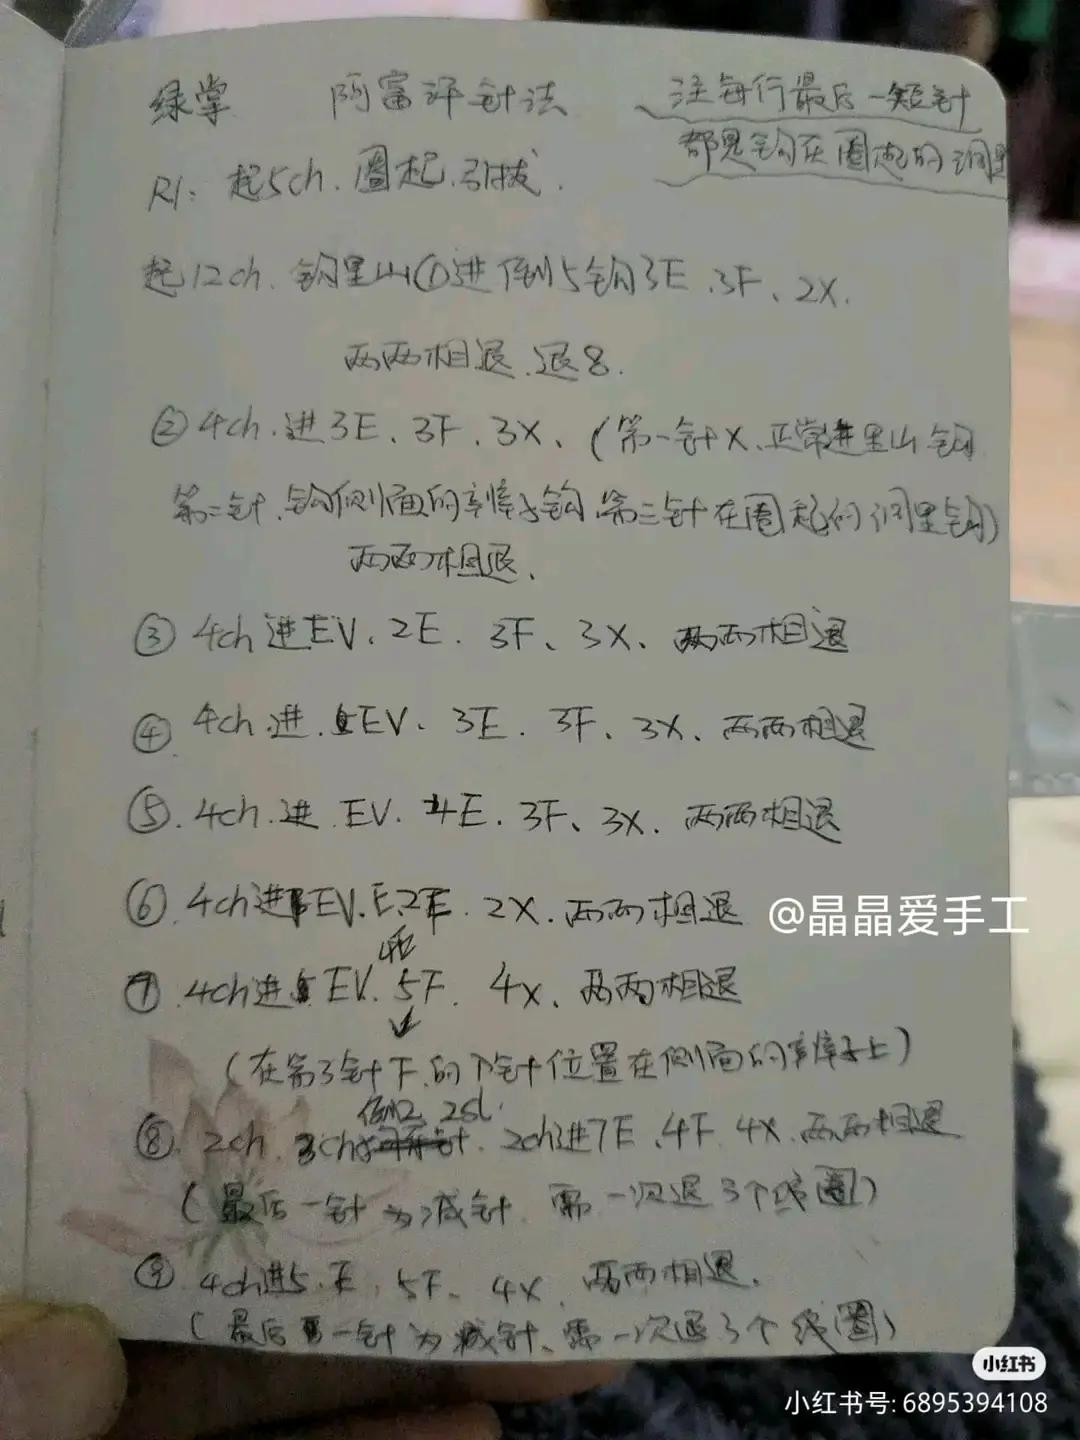 绿掌 阿富汗针法 注每行最后一短针
都是钩在圈起的洞里
R1: 起5ch. 圈起. 引拔.
起12ch. 钩里山①进倒5钩3E、3F、2X.
两两相退. 退8.
② 4ch. 进3E、3F、3X、(第一针X、正常进里山钩
第二针、钩侧面的辛瘴子钩. 第三针在圈起的洞里钩)
两两相退.
③ 4ch进EV、2E. 3F、3X、两两相退
④ 4ch.进.EV、3E. 3F、3X、两两相退
⑤. 4ch.进 EV. 4E. 3F、3X. 两两相退
⑥. 4ch进EV.E.2F. 2X. 两两相退
⑦ 4ch进EV. 5F. 4X、两两相退
(在第3针下的下针位置在侧面的辛瘴子上)
倒2 2sl.
⑧ 2ch. 2ch进7E、4F. 4X. 两两相退
(最后一针为减针. 需一次退3个线圈)
⑨. 4ch进5.E. 5F、4X、两两相退.
(最后一针为减针、需一次退3个线圈)
@晶晶爱手工
小红书
小红书号: 6895394108